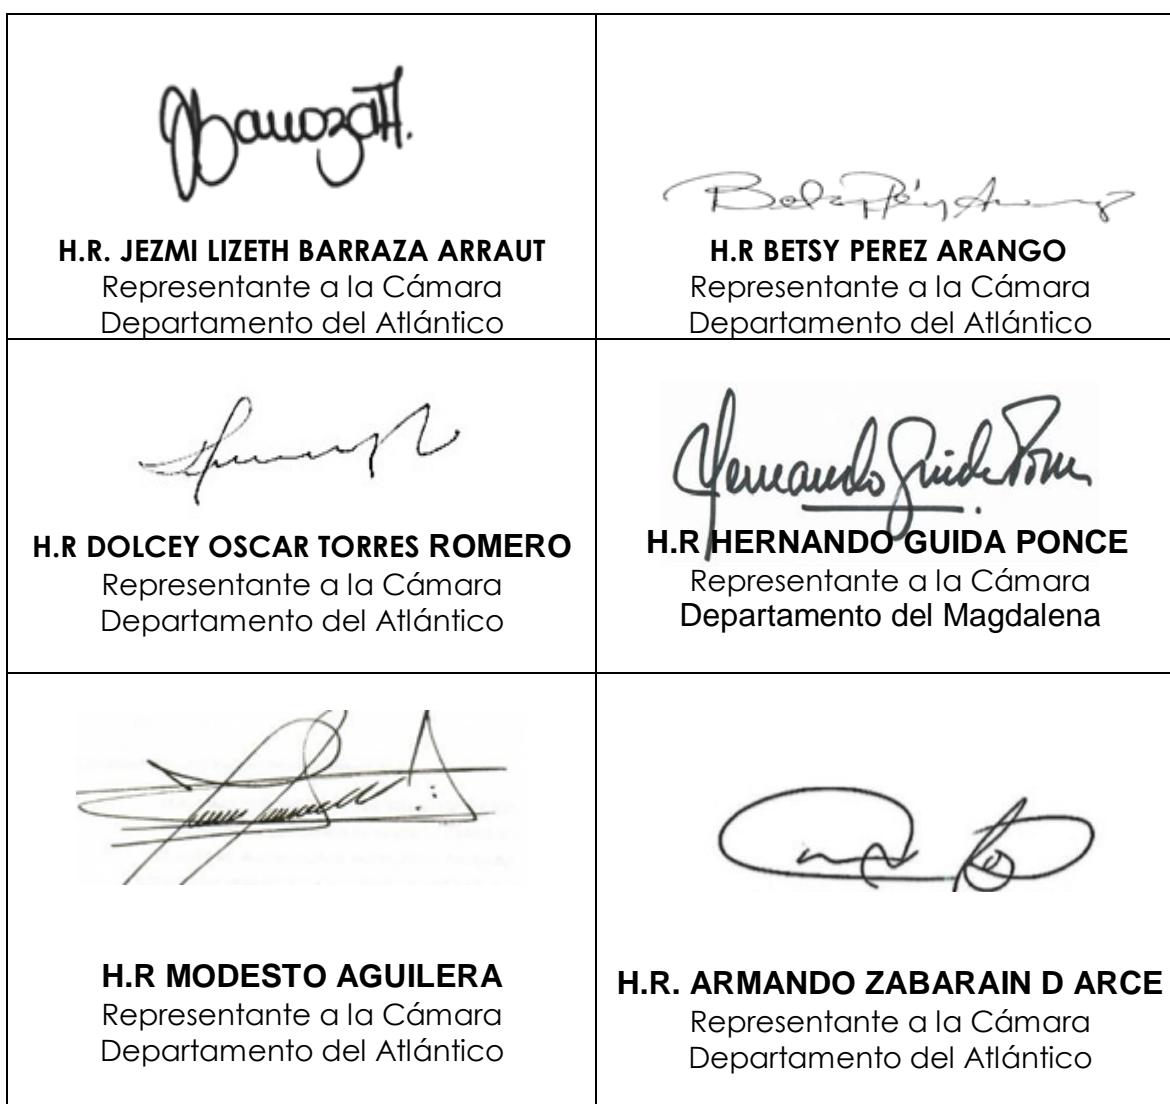 Barraza A.
H.R. JEZMI LIZETH BARRAZA ARRAUT
Representante a la Cámara
Departamento del Atlántico
Betsy Pérez Arango
H.R BETSY PEREZ ARANGO
Representante a la Cámara
Departamento del Atlántico
H.R DOLCEY OSCAR TORRES ROMERO
Representante a la Cámara
Departamento del Atlántico
Hernando Guida Ponce
H.R HERNANDO GUIDA PONCE
Representante a la Cámara
Departamento del Magdalena
H.R MODESTO AGUILERA
Representante a la Cámara
Departamento del Atlántico
H.R. ARMANDO ZABARAIN D ARCE
Representante a la Cámara
Departamento del Atlántico